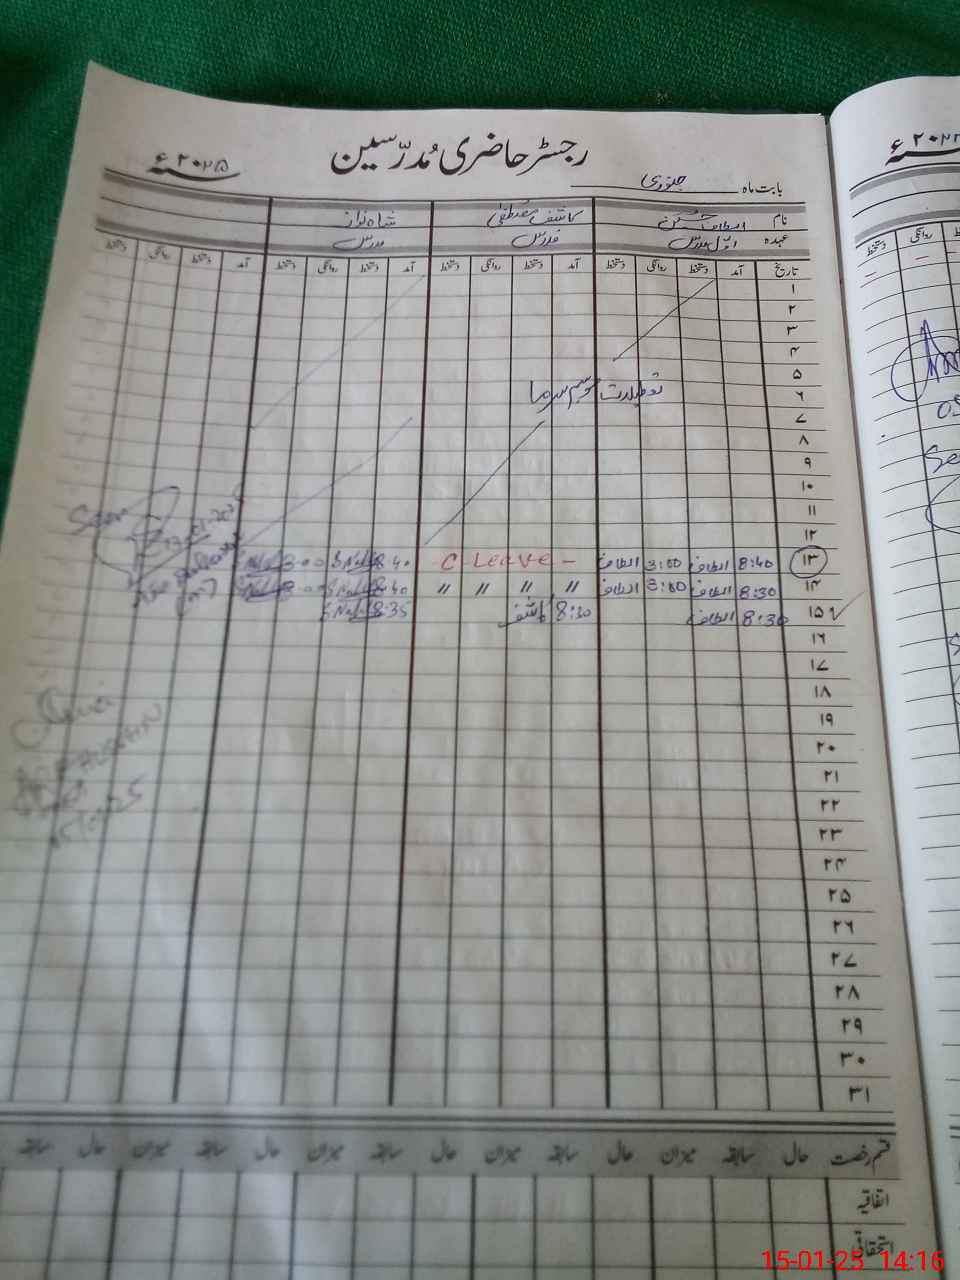 رجسٹر حاضری مُدرّسین
۲۰۲۵ء
بابت ماہ جنوری
نام الطاف حسین کاشف مصطفیٰ شاہ نواز
عہدہ اوّل مدرس مدرس مدرس
تاریخ آمد دستخط روانگی دستخط آمد دستخط روانگی دستخط آمد دستخط روانگی دستخط آمد دستخط روانگی دستخط
۱
۲
۳
۴
۵
۶ تعطیلات موسم سرما
۷
۸
۹
۱۰
۱۱
۱۲
۱۳ 8:40 الطاف 3:00 الطاف - C Leave - 8:40 3:00
۱۴ 8:30 الطاف 3:00 الطاف " " " " 8:40 3:00
۱۵ 8:30 الطاف 8:30 کاشف 8:35
۱۶
۱۷
۱۸
۱۹
۲۰
۲۱
۲۲
۲۳
۲۴
۲۵
۲۶
۲۷
۲۸
۲۹
۳۰
۳۱
Seen
قسم رخصت حال سابقہ میزان حال سابقہ میزان حال سابقہ میزان حال سابقہ میزان حال سابقہ
اتفاقیہ
استحقاقی
15-01-25 14:16